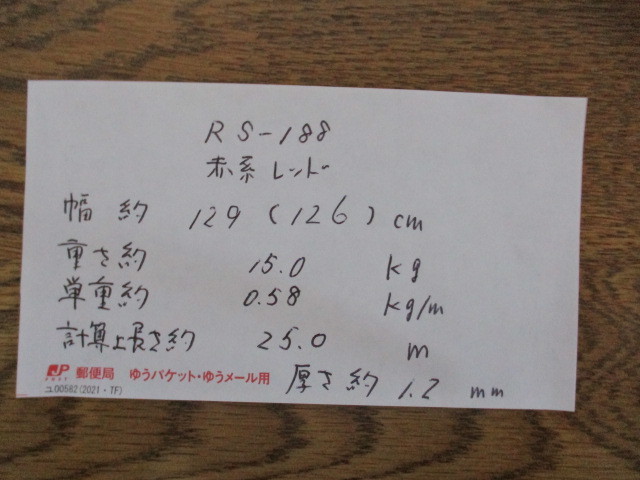 RS-188
赤系レッド
幅約 129 (126) cm
重さ約 15.0 kg
単重約 0.58 kg/m
計算上長さ約 25.0 m
厚さ約 1.2 mm
JP POST 郵便局 ゆうパケット・ゆうメール用
ユ00582(2021・TF)